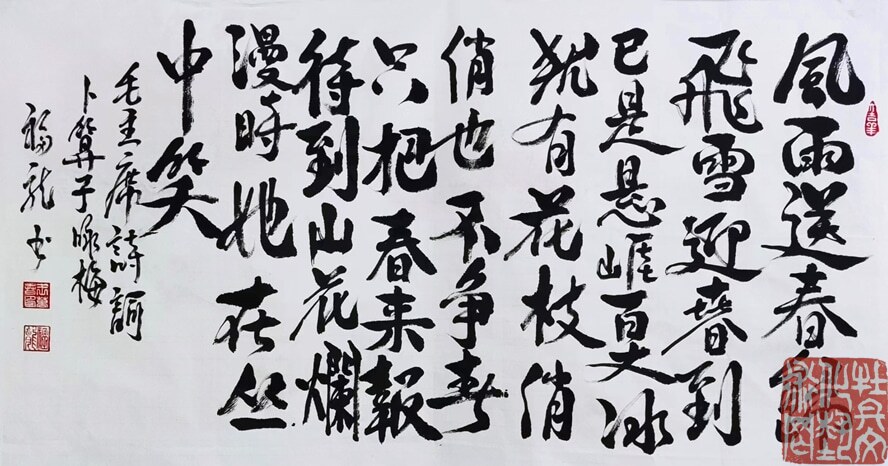 風雨送春歸
飛雪迎春到
已是悬崕百丈冰
犹有花枝俏
俏也不争春
只把春来報
待到山花爛
漫時她在丛
中笑
毛主席詩詞
卜算子咏梅
福龙书